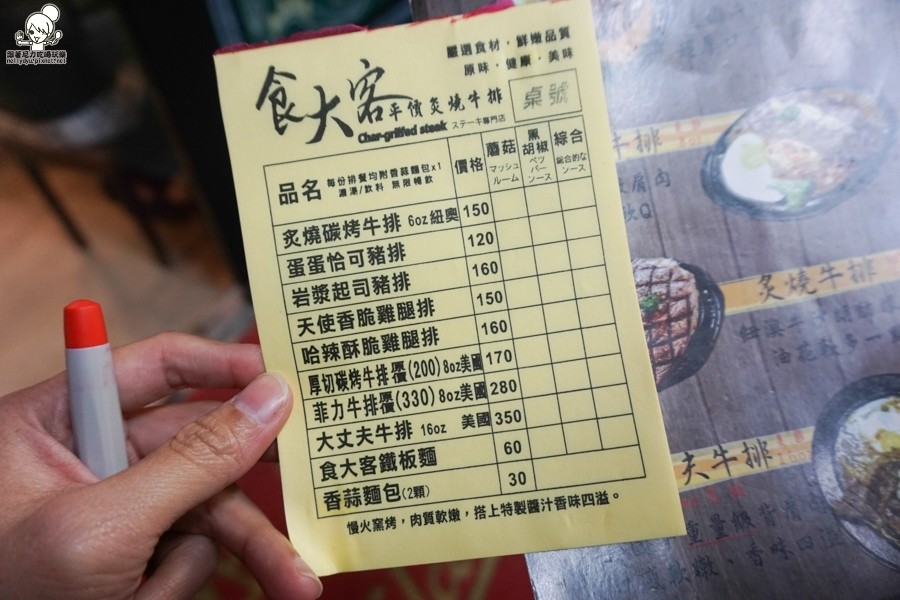 跟著尼力吃喝玩樂
嚴選食材，鮮嫩品質
原味，健康，美味
食大客平價炙燒牛排
Char-grilled steak ステーキ專門店
桌號
品名 每份排餐均附香蒜麵包x1
濃湯/飲料 無限暢飲
價格
蘑菇
マッシュ
ルーム
黑胡椒
ペッ
パー
ソース
綜合
総合的な
ソース
炙燒碳烤牛排 6oz紐奧 150
蛋蛋恰可豬排 120
岩漿起司豬排 160
天使香脆雞腿排 150
哈辣酥脆雞腿排 160
厚切碳烤牛排原價(200)8oz美國 170
菲力牛排原價(330)8oz美國 280
大丈夫牛排 16oz 美國 350
食大客鐵板麵 60
香蒜麵包(2顆) 30
慢火窯烤，肉質軟嫩，搭上特製醬汁香味四溢。
牛排
炙燒牛排
夫牛排